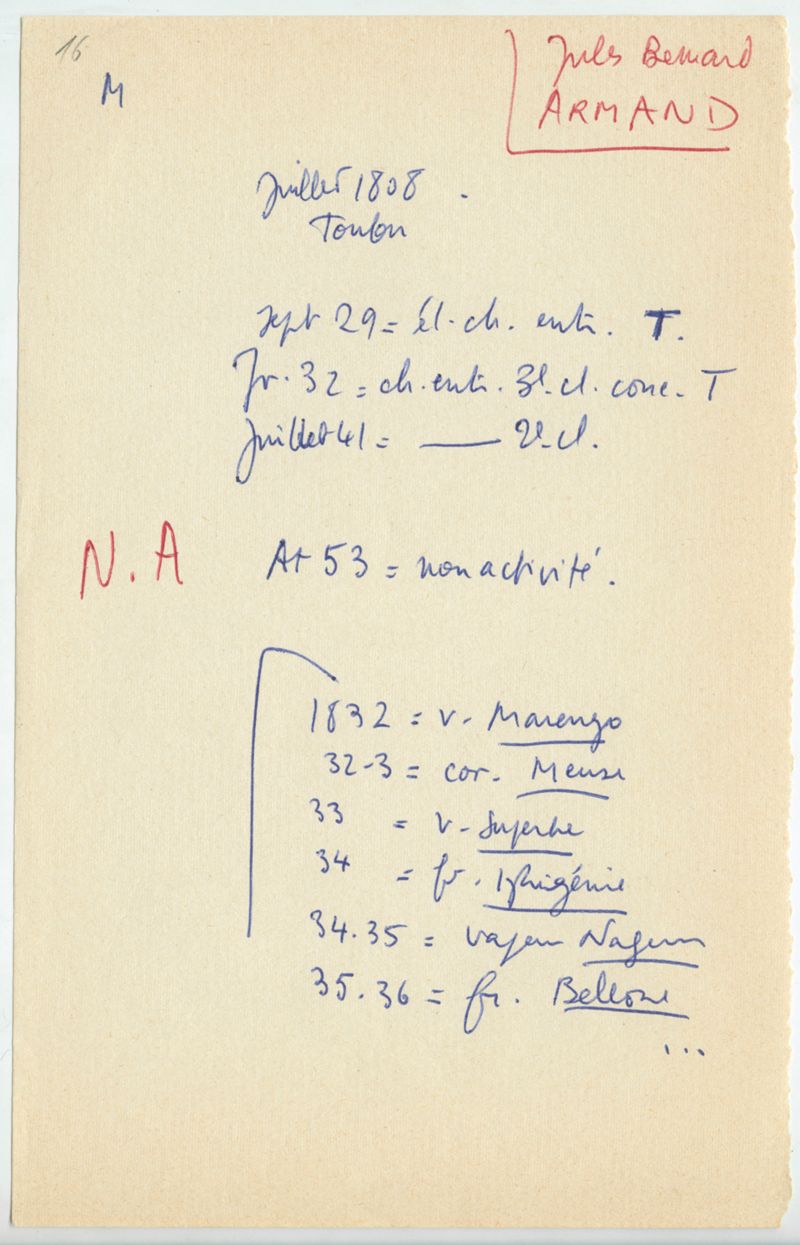 16
M
Jules Bernard
ARMAND
Juillet 1808.
Toulon
sept 29 = él. ch. entr. T.
Jr. 32 = ch. entr. 3e. cl. conc. T
Juillet 41 = —— 2e. cl.
N.A
At 53 = non activité.
1832 = v. Marengo
32-3 = cor. Meuse
33 = v. Superbe
34 = fr. Iphigénie
34.35 = vapeur Nageur
35.36 = fr. Bellone
...